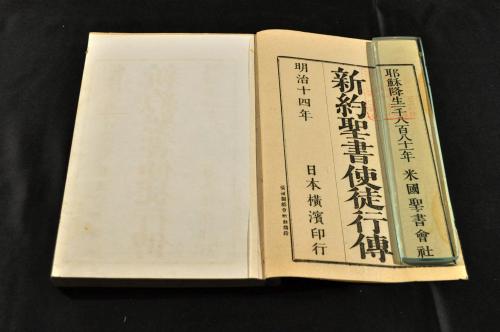 耶穌降生一千八百八十一年 米國聖書會社
新約聖書使徒行傳
明治十四年 日本橫濱印行